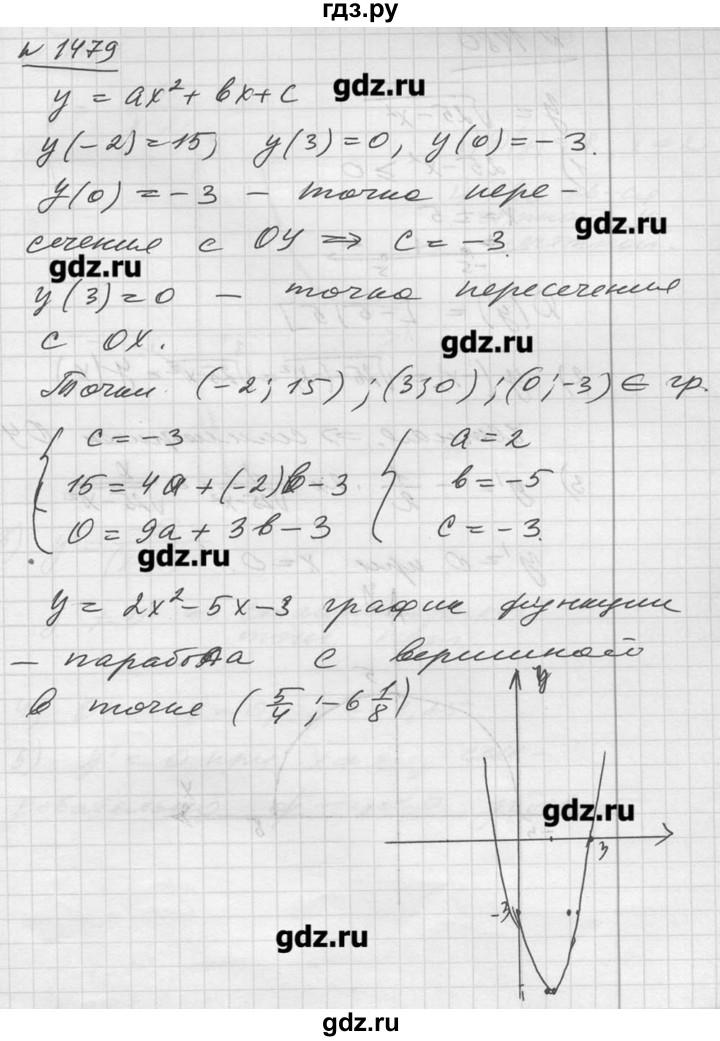 гдз.ру
№ 1479
y = ax² + bx + c gdz.ru
y(-2) = 15, y(3) = 0, y(0) = -3.
y(0) = -3 – точка пере-
gdz.ru
сечения с OY ⇒ c = -3.
gdz.ru
y(3) = 0 – точка пересечения
с OX.
gdz.ru
Точки (-2; 15); (3; 0); (0; -3) ∈ гр.
{ c = -3 { a = 2
15 = 4a + (-2)b - 3 b = -5
0 = 9a + 3b - 3 c = -3.
gdz.ru
y = 2x² - 5x - 3 график функции
– парабола с вершиной
в точке (5/4; -6 1/8)
y
gdz.ru
3
-3
gdz.ru
gdz.ru